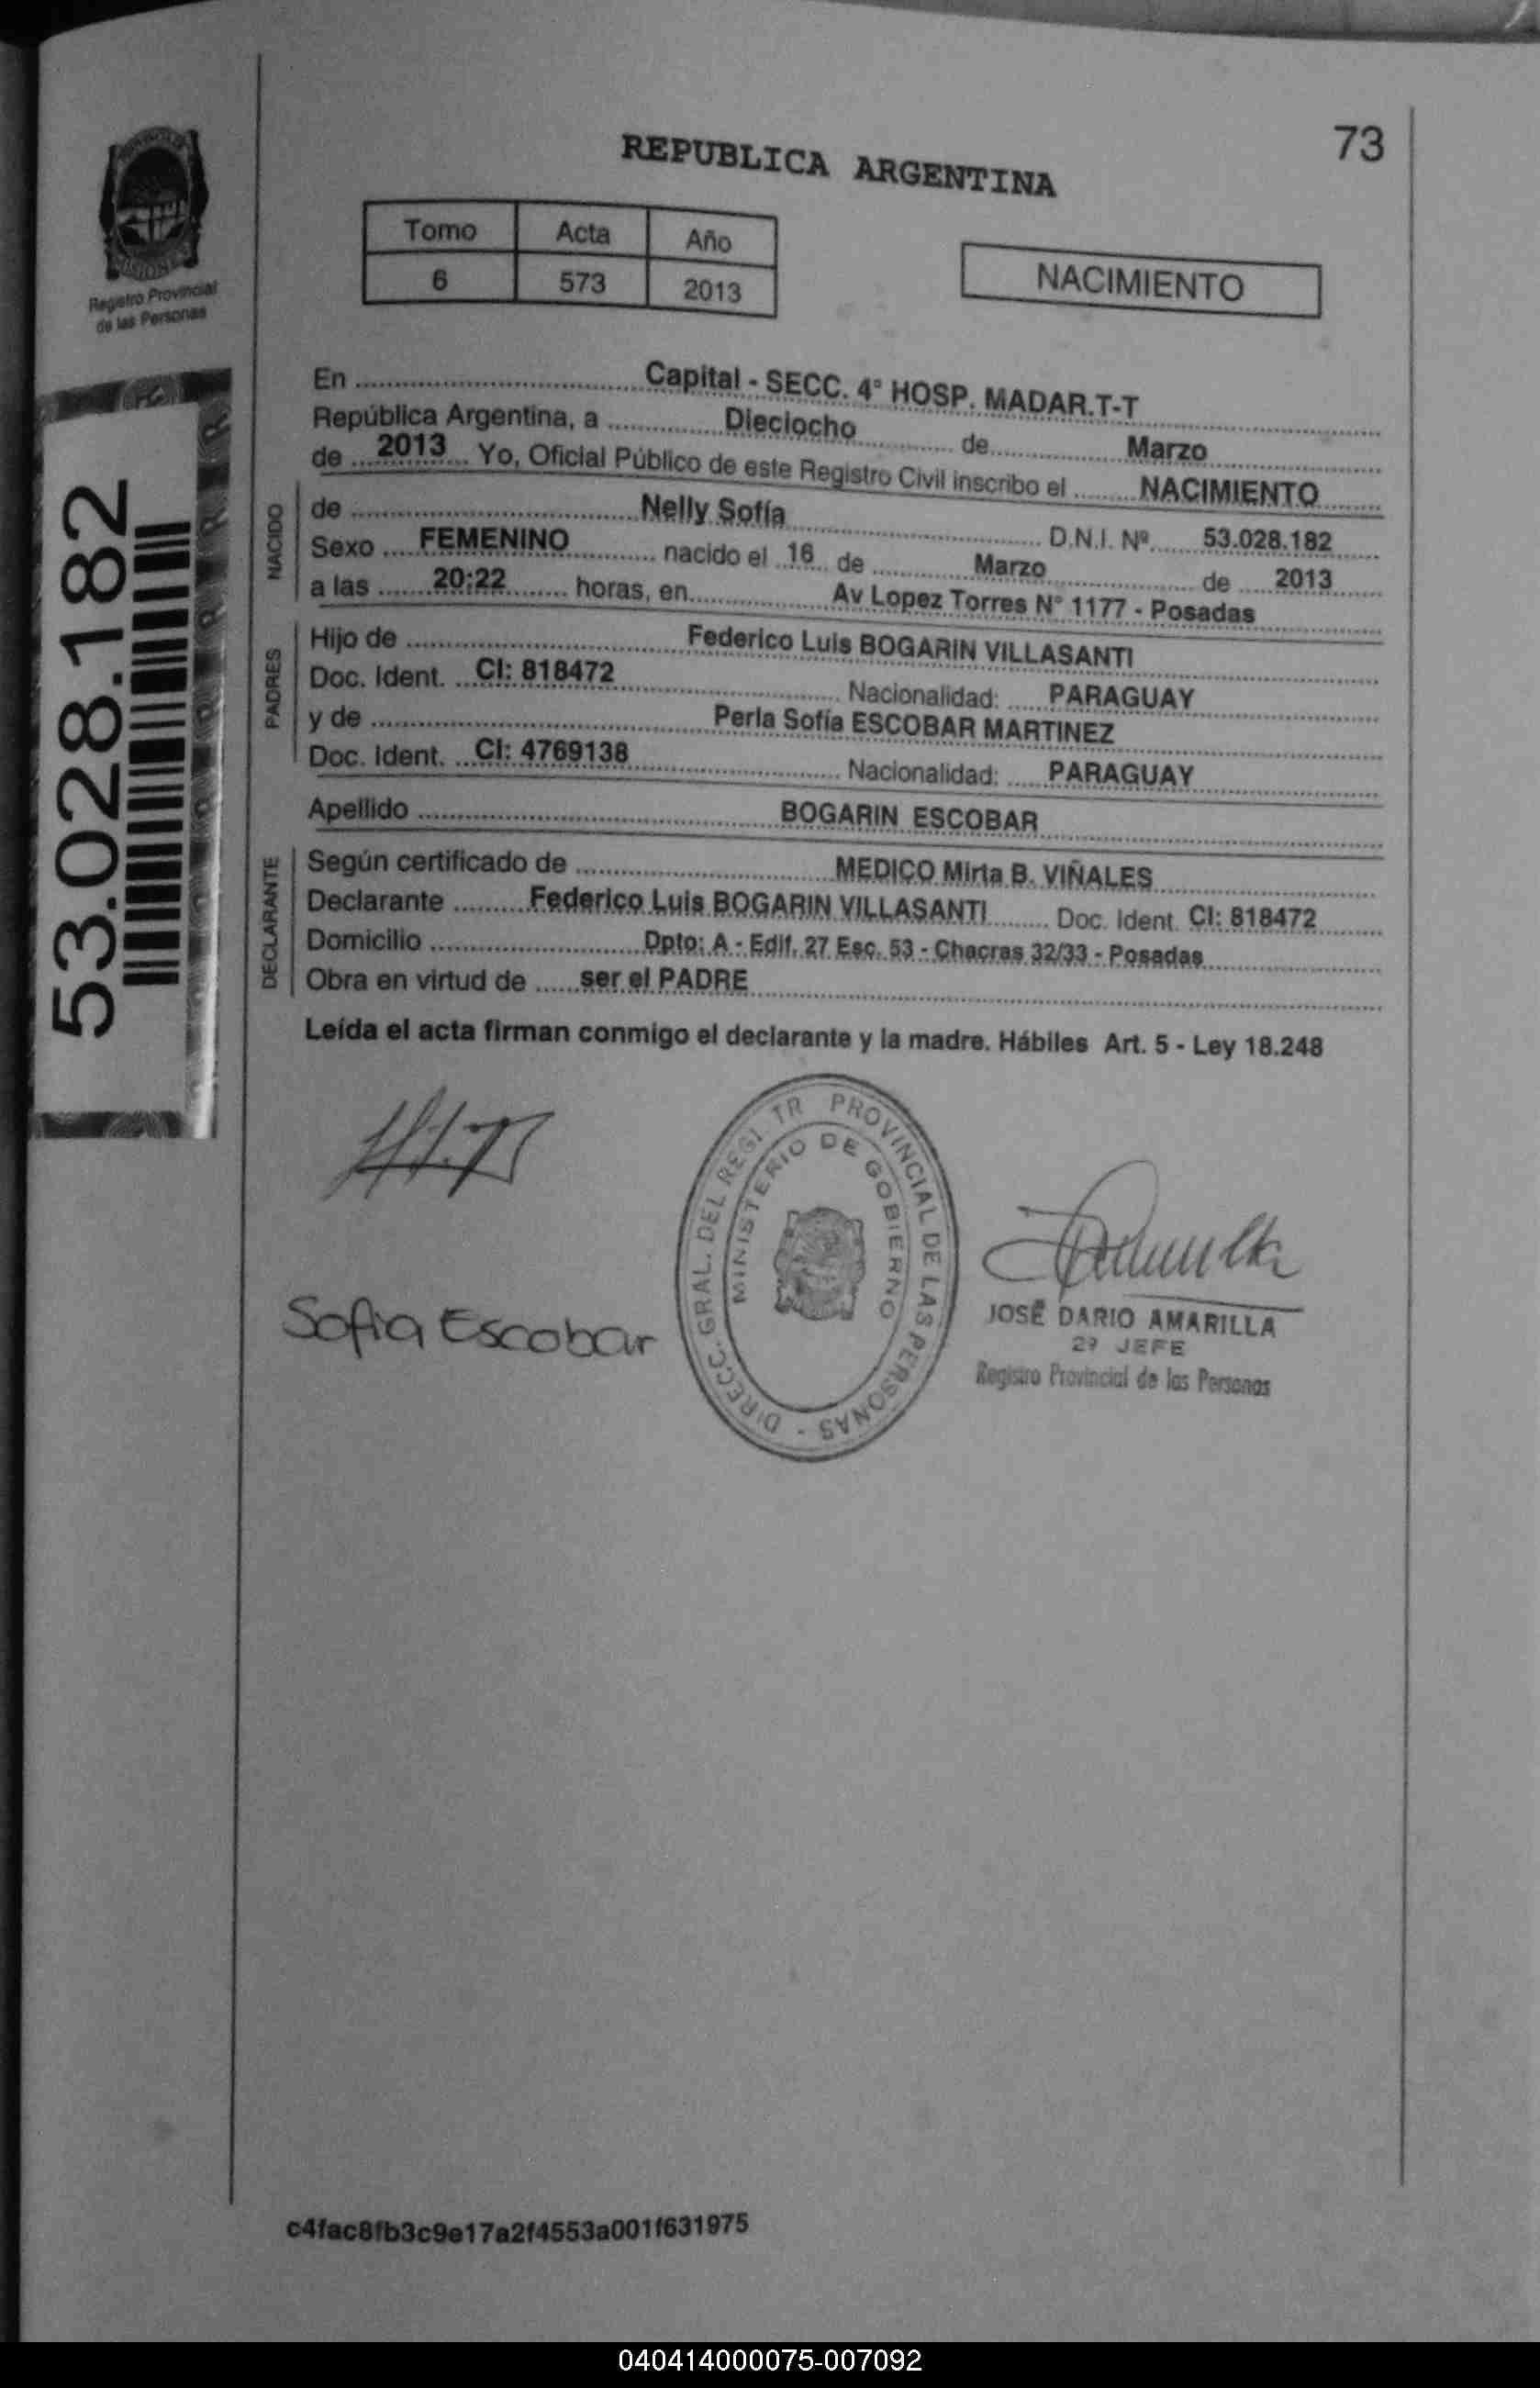 73
REPUBLICA ARGENTINA
Tomo Acta Año
6 573 2013
NACIMIENTO
MISIONES
Registro Provincial
de las Personas
53.028.182
En ........ Capital - SECC. 4° HOSP. MADAR.T-T
República Argentina, a ........ Dieciocho ........ de ........ Marzo
de ... 2013 ... Yo, Oficial Público de este Registro Civil inscribo el ........ NACIMIENTO
NACIDO
de ........ Nelly Sofía ........ D.N.I. Nº ........ 53.028.182
Sexo .... FEMENINO ........ nacido el .. 16 .. de ........ Marzo ........ de .... 2013
a las ...... 20:22 ........ horas, en ........ Av Lopez Torres N° 1177 - Posadas
PADRES
Hijo de ........ Federico Luis BOGARIN VILLASANTI
Doc. Ident. ... CI: 818472 ........ Nacionalidad: ..... PARAGUAY
y de ........ Perla Sofía ESCOBAR MARTINEZ
Doc. Ident. ... CI: 4769138 ........ Nacionalidad: ..... PARAGUAY
Apellido ........ BOGARIN ESCOBAR
DECLARANTE
Según certificado de ........ MEDICO Mirta B. VIÑALES
Declarante ........ Federico Luis BOGARIN VILLASANTI ........ Doc. Ident. CI: 818472
Domicilio ........ Dpto: A - Edif. 27 Esc. 53 - Chacras 32/33 - Posadas
Obra en virtud de ...... ser el PADRE
Leída el acta firman conmigo el declarante y la madre. Hábiles Art. 5 - Ley 18.248
DIRECC. GRAL. DEL REGI TR PROVINCIAL DE LAS PERSONAS -
MINISTERIO DE GOBIERNO
Sofia Escobar
JOSÉ DARIO AMARILLA
2º JEFE
Registro Provincial de las Personas
c4fac8fb3c9e17a2f4553a001f631975
040414000075-007092